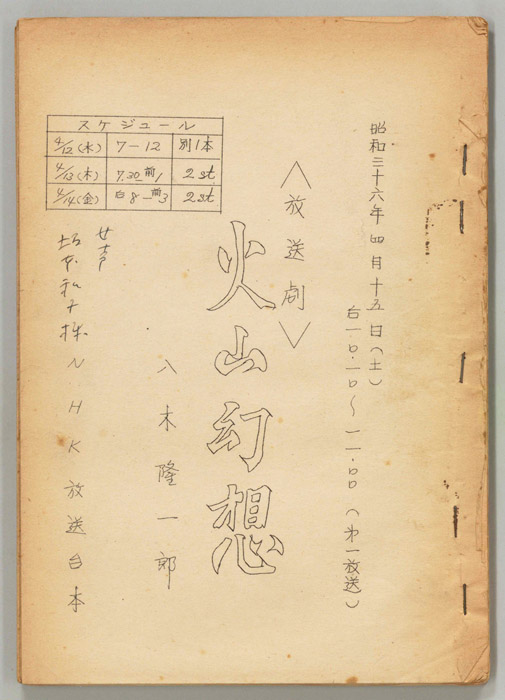 昭和三十六年四月十五日(土)
后一〇.一〇〜一一.〇〇(第一放送)
〈放送劇〉
火山幻想
八木隆一郎
NHK放送台本
スケジュール
4/12(水) 7-12 別1本
4/13(木) 7.30-前1 2st
4/14(金) 白8-前3 2st
坂本和子様